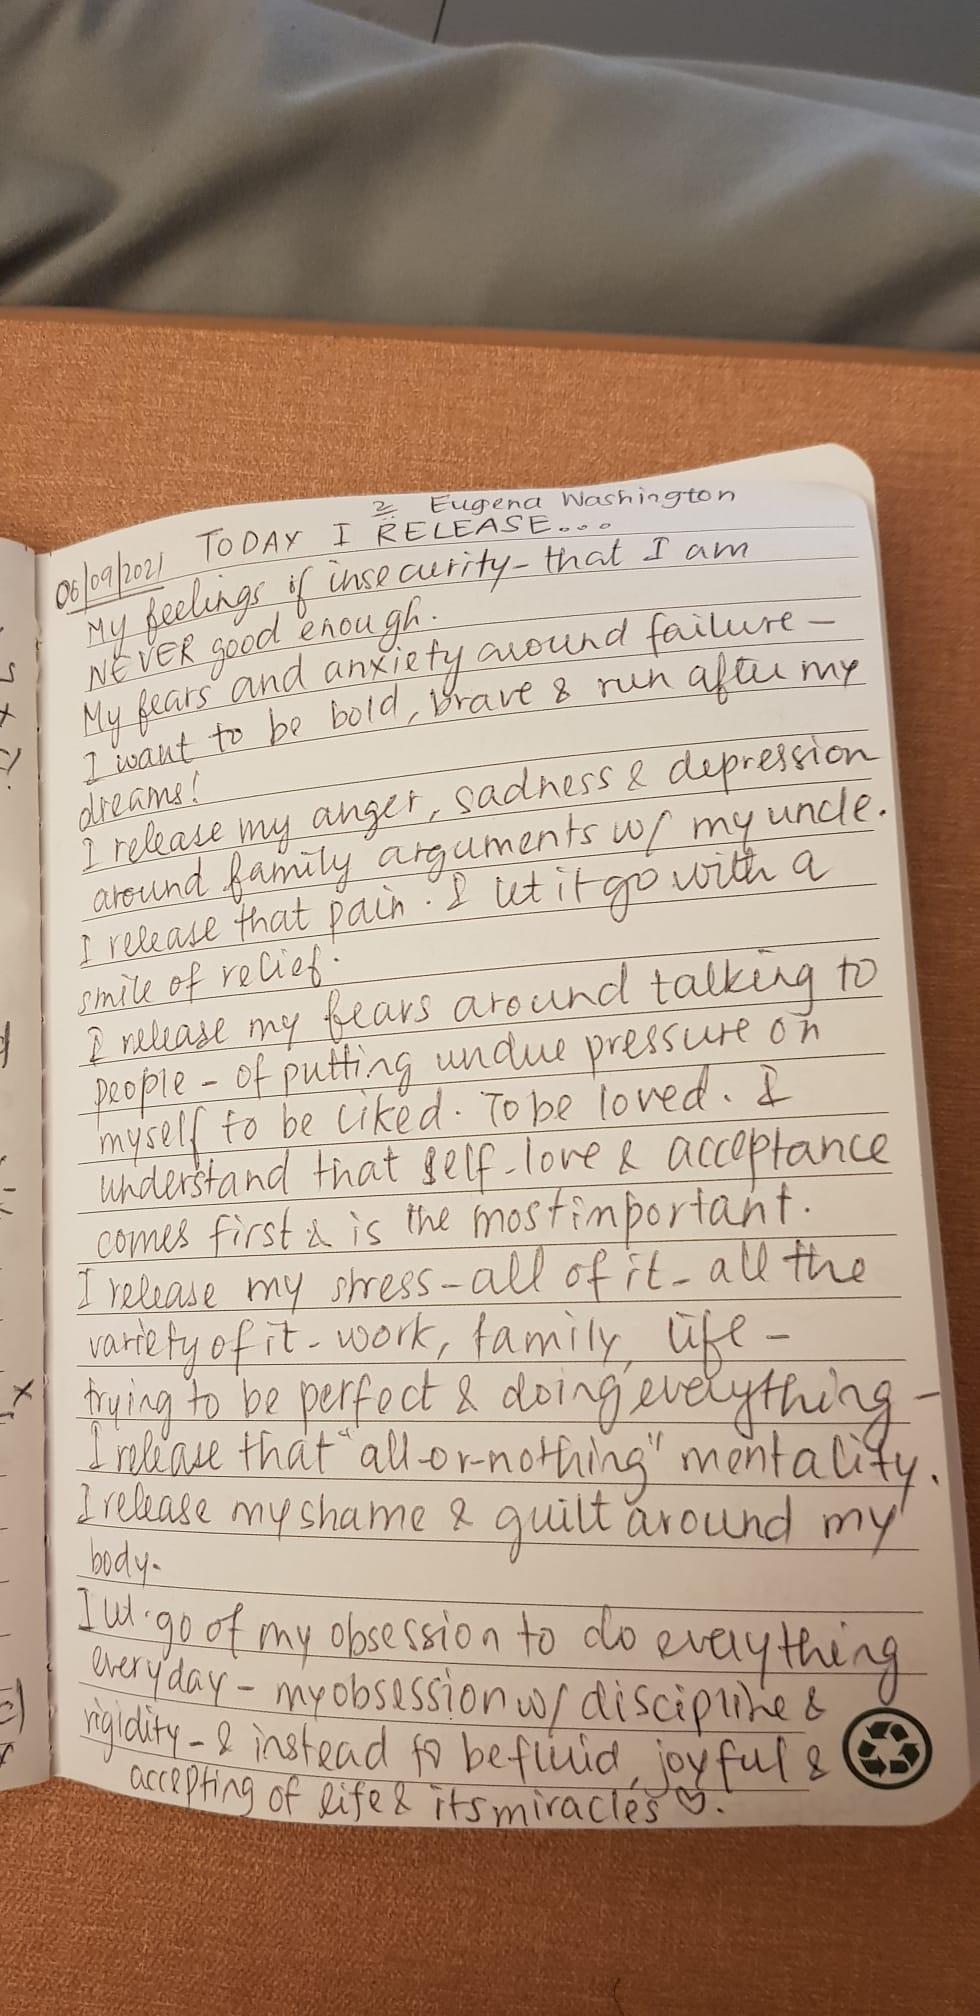 2 Eugena Washington
06/09/2021 TODAY I RELEASE...
My feelings of insecurity - that I am
NEVER good enough.
My fears and anxiety around failure -
I want to be bold, brave & run after my
dreams!
I release my anger, sadness & depression
around family arguments w/ my uncle.
I release that pain. I let it go with a
smile of relief.
I release my fears around talking to
people - of putting undue pressure on
myself to be liked. To be loved. I
understand that self-love & acceptance
comes first & is the most important.
I release my stress - all of it - all the
variety of it - work, family, life -
trying to be perfect & doing everything -
I release that "all-or-nothing" mentality.
I release my shame & guilt around my
body.
I let go of my obsession to do everything
everyday - my obsession w/ discipline &
rigidity - & instead to be fluid, joyful &
accepting of life & its miracles ♡.